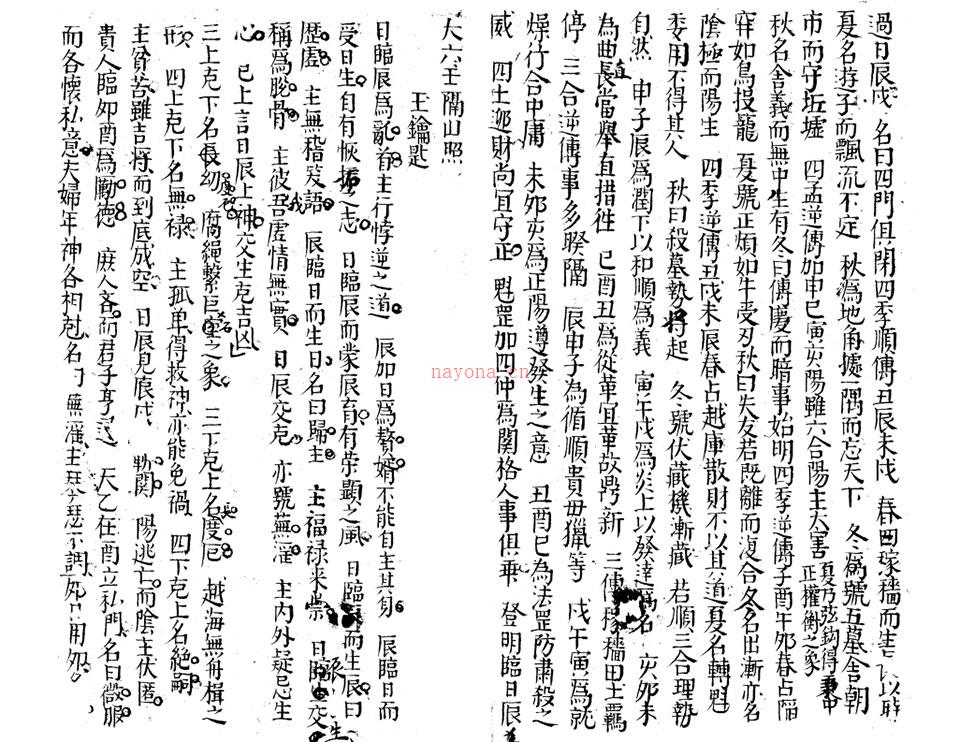 過日辰戌 名曰四門俱閉四季順傳丑辰未戌 春曰稼穡而生 以時
夏名遊子而飄流不定 秋爲地角據一隅而忘天下 冬爲號五墓舍朝
市而守坵墟 四孟逆傳如申巳寅亥陽雖六合陽主大害 夏乃弦鈎得秉中正權衡之象
秋名舍義而無中生有冬曰傳慶而暗事始明四季逆傳子酉午夘春占
穽如鳥投籠 夏號正煩如牛受刃秋曰失友若既離而復合冬名出漸亦名
陰極而陽生 四季逆傳丑戌未辰春占越庫散財不以其道夏名轉魁
委用不得其人 秋曰殺墓勢將起 冬號伏藏機漸藏 若順三合理勢
自然 申子辰爲潤下以和順爲義 寅午戌爲炎上以發達爲名 亥夘未
爲曲直長當舉直措徃 巳酉丑爲從革宜革故鼎新 三傳稼穡田土羈
停 三合逆傳事多睽隔 辰申子為循順貴毋獵等 戌午寅爲就
燥行合中庸 未夘亥爲正陽遵發生之意 丑酉巳為法罡防肅殺之
威 四土逆財尚宜守正 魁罡加四仲爲関格人事俱乖 登明臨日辰
大六壬隔山照
玉鑰匙
日臨辰爲亂首主行悖逆之道 辰加日爲贅婿不能自主其身 辰臨日而
受日生自有恢 之志 日臨辰而蒙辰育有荣顯之風 日臨辰而生辰曰
歷虛 主無稽 語 辰臨日而生日名曰歸主 主福禄来崇 日 交
稱爲脫骨 主彼我吾虛情無實 日辰交克 亦號蕪淫 主内外疑忌生
心 已上言日辰上神交生克吉凶
三上克下名長幼 腐繩繫巨室之象 三下克上名度厄 越海無舟楫之
形 四上克下名無禄 主孤单得救神亦能免禍 四下克上名絶嗣
主貧苦雖吉將而到底成空 日辰見辰戌 陽逃亡而陰主伏匿
貴人臨夘酉爲勵德 庶人吝而君子亨 天乙在酉立私門名曰微服
而各懷私意夫婦年神各相尅名曰蕪淫主琴瑟不調
nayona.cn